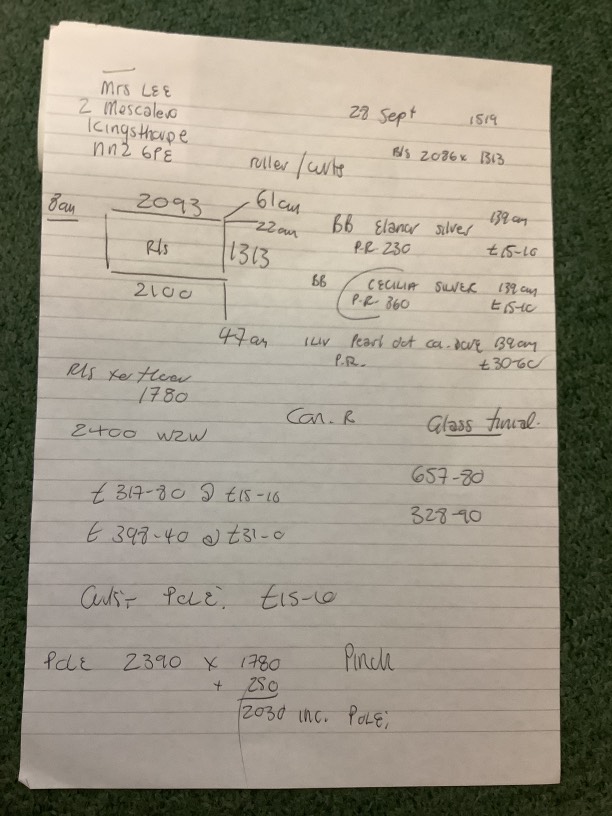 Mrs LEE
2 Mescalero
Kingsthorpe
nn2 6PE
28 Sept 1519
roller / curts
R/s 2086 x 1313
8am
2093
61cm
22cm
R/s
1313
2100
47cm
BB Elanor silver 139cm
P.R. 230 £15-10
BB CECILIA SILVER 139cm
P.R. 360 £15-10
Pearl dot 139cm
P.R. £30-60
R/s
1780
2400 W2W
Con. R
Glass
657-80
328-90
£317-80 @ £15-10
£398-40 @ £31-0
Curts- POLE. £15-10
POLE 2390 x 1780 Pinch
+ 250
2030 inc. POLE,